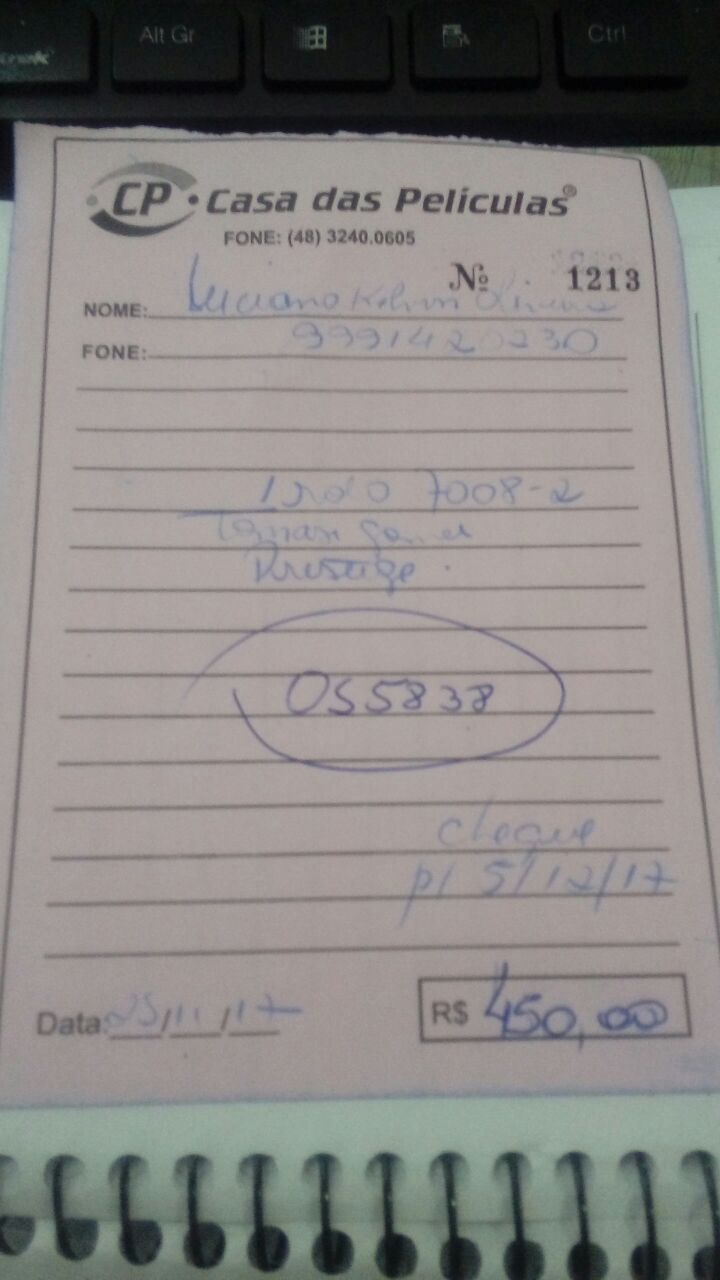 Alt Gr
Ctrl
CP · Casa das Películas®
FONE: (48) 3240.0605
Nº 1213
NOME: Luciano
FONE: 999142 0230
7008-2
Prestige
OS 5838
cheque
p/ 5/12/17
Data: 23/11/17
R$ 450,00